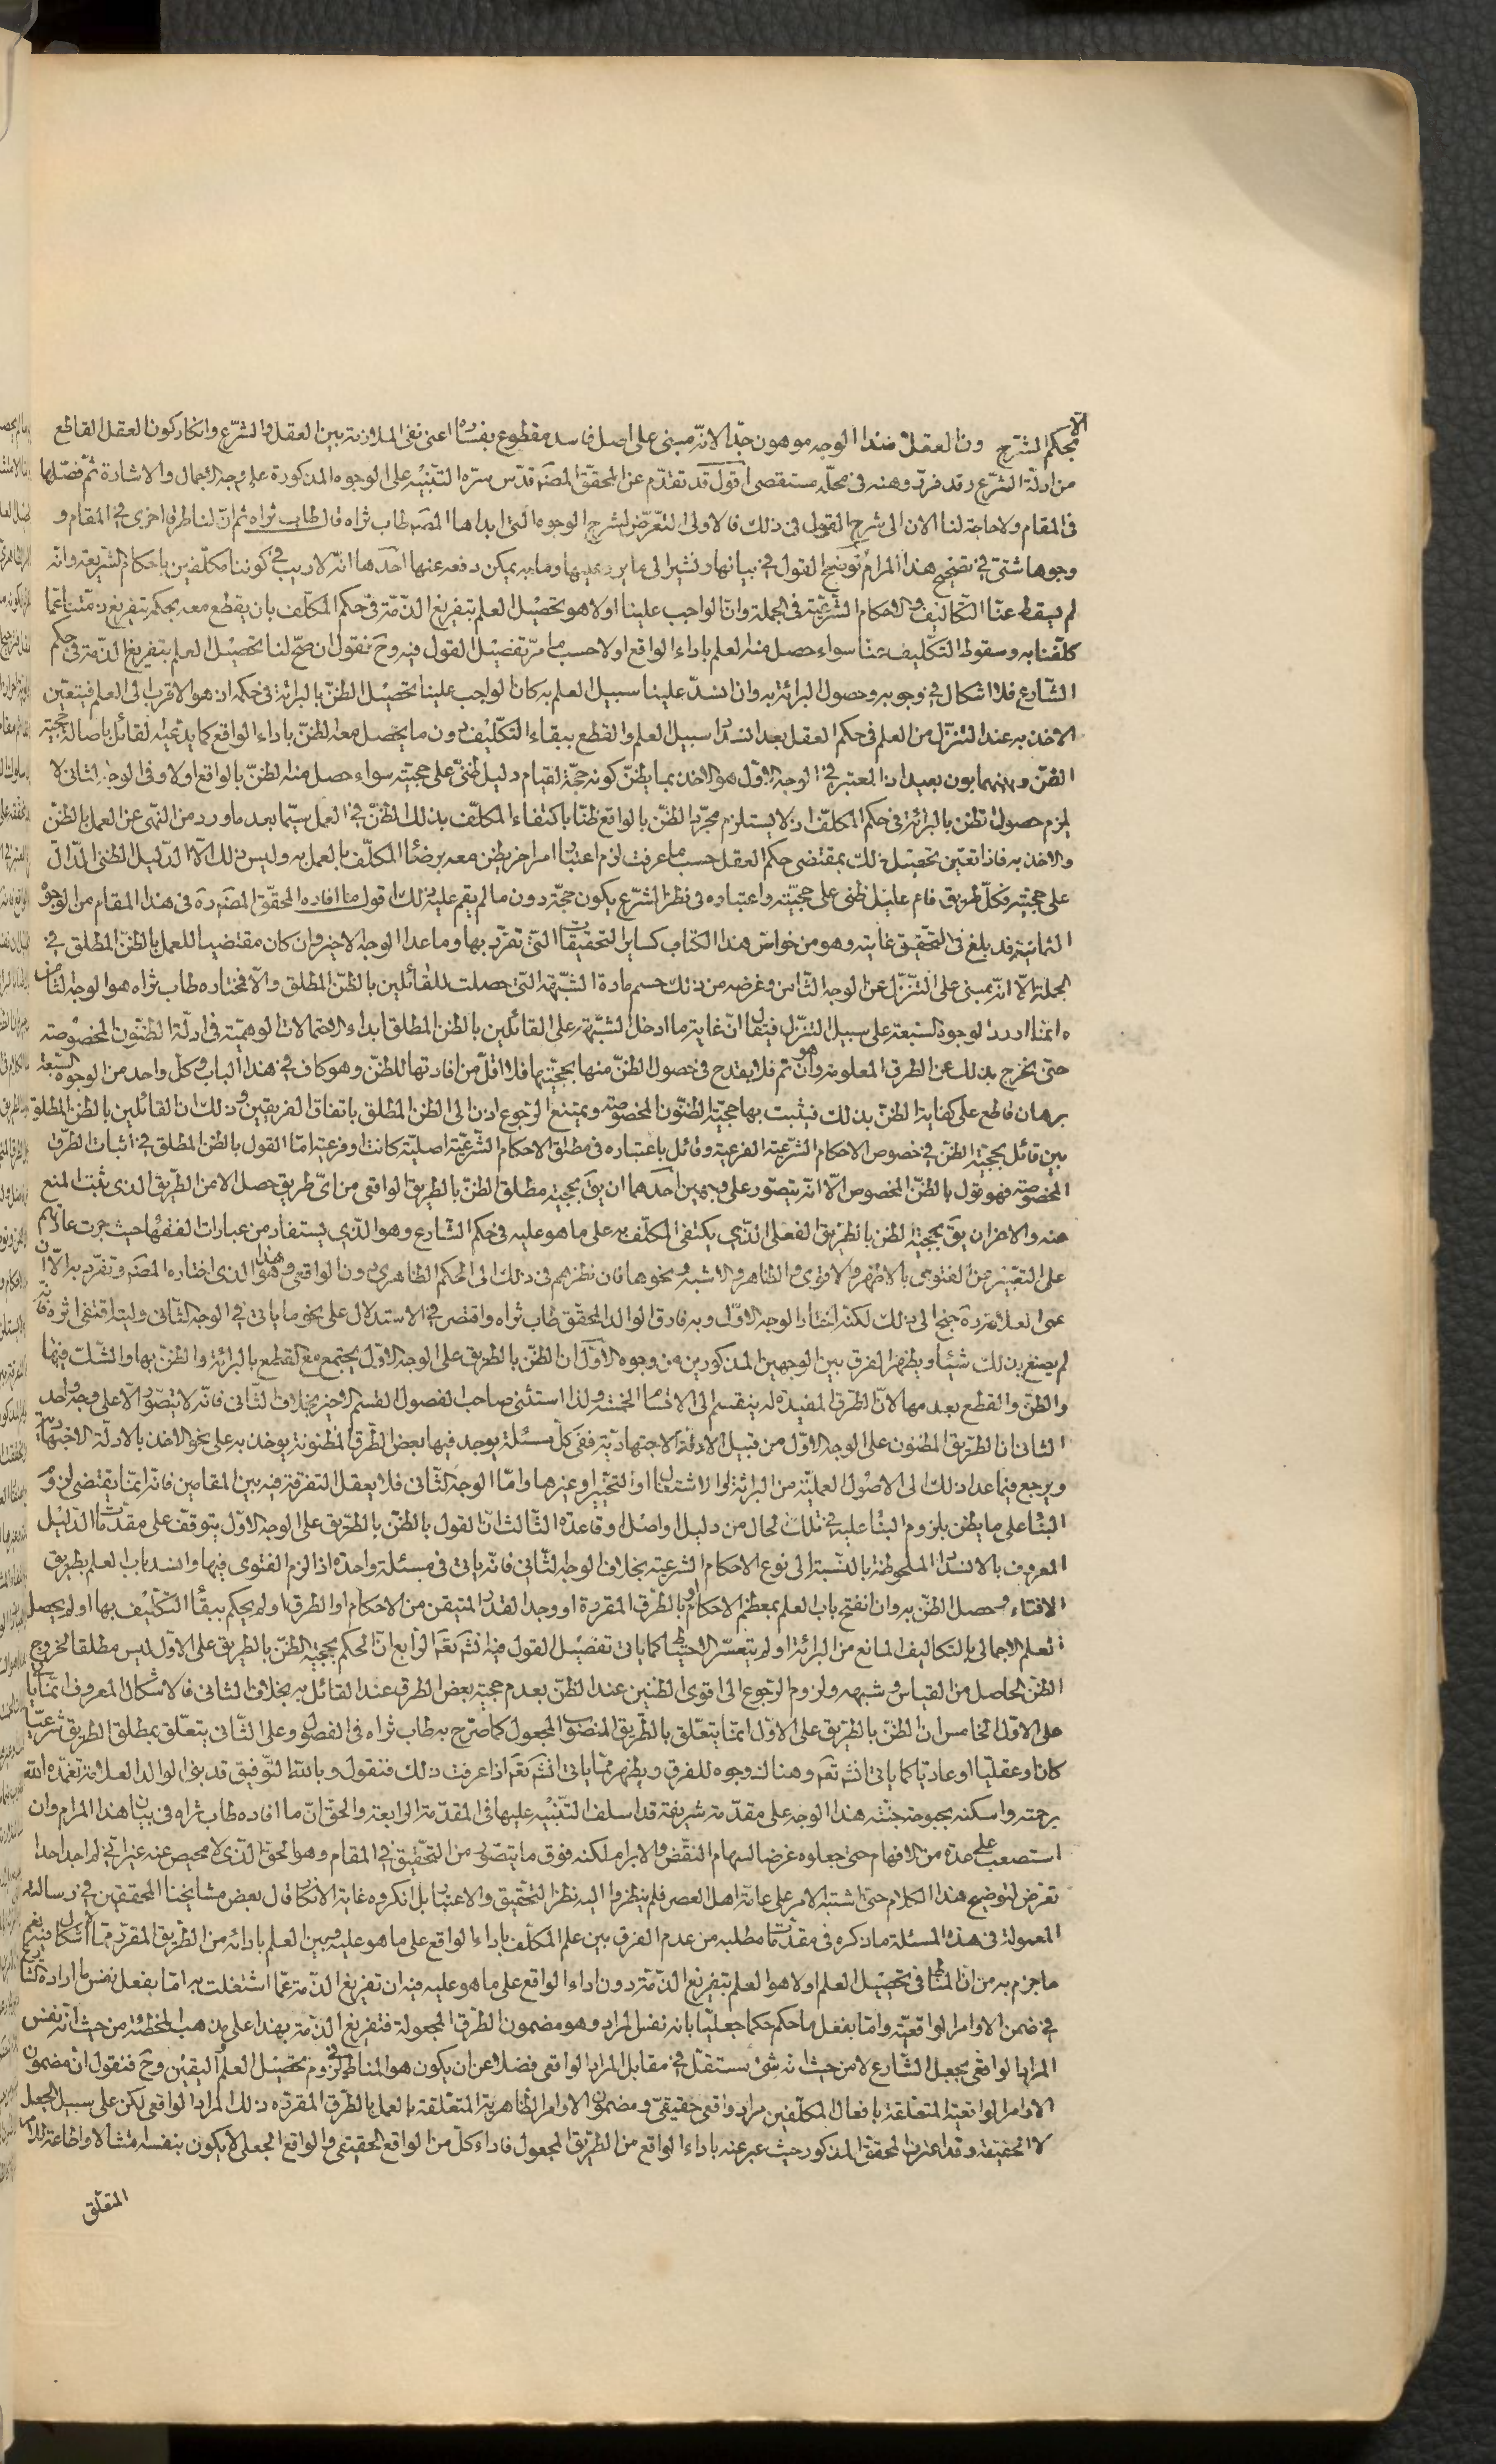 الا بحكم الشرع دون العقل فهذا الوجه موهون جدا لانه مبنى على اصل فاسد مقطوع بفساده اعنى نفى الملازمة بين العقل والشرع وانكار كون العقل القاطع
من ادلة الشرع وقد قرر وهنه فى محله مستقصى اقول قد تقدم عن المحقق المصنف قدس سره التنبيه على الوجوه المذكورة على وجه الاجمال والاشارة ثم فصلها
فى المقام ولا حاجة لنا الان الى شرح القول فى ذلك فالاولى التعرض لشرح الوجوه التى ابداها المصنف طاب ثراه قال طاب ثراه ثم ان لنا طرقا اخرى فى المقام و
وجوها شتى فى تصحيح هذا المرام نوضح القول فى بيانها ونشير الى ما يرد عليها وما به يمكن دفعه عنها احدها انه لا ريب فى كوننا مكلفين باحكام الشريعة وانه
لم يسقط عنا التكاليف والاحكام الشرعية فى الجملة وان الواجب علينا اولا هو تحصيل العلم بتفريغ الذمة فى حكم المكلف بان يقطع معه بحكمه بتفريغ ذمتنا عما
كلفنا به وسقوط التكليف عنا سواء حصل منه العلم باداء الواقع اولا حسب ما مر تفصيل القول فيه وح نقول ان صح لنا تحصيل العلم بتفريغ الذمة فى حكم
الشارع فلا اشكال فى وجوبه وحصول البرائة به وان انسد علينا سبيل العلم به كان الواجب علينا تحصيل الظن بالبرائة فى حكمه اذ هو الاقرب الى العلم فيتعين
الاخذ به عند التنزل من العلم فى حكم العقل بعد انسداد سبيل العلم والقطع ببقاء التكليف دون ما يحصل معه الظن باداء الواقع كما يدعيه القائل باصالة حجية
الظن وبينهما بون بعيد اذ المعتبر فى الوجه الاول هو الاخذ بما يظن كونه حجة لقيام دليل ظنى على حجيته سواء حصل منه الظن بالواقع اولا وفى الوجه الثانى لا
يلزم حصول الظن بالبرائة فى حكم المكلف اذ لا يستلزم مجرد الظن بالواقع ظنا باكتفاء المكلف بذلك الظن فى العمل سيما بعد ما ورد من النهى عن العمل بالظن
والاخذ به فاذا تعين تحصيل ذلك بمقتضى حكم العقل حسب ما عرفت لزم اعتبار امر اخر يظن معه برضا المكلف بالعمل به وليس ذلك الا الدليل الظنى الدال
على حجيته فكل طريق قام عليل ظنى على حجيته واعتباره فى نظر الشرع يكون حجة دون ما لم يقم عليه ذلك اقول ما افاده المحقق المصنف ره فى هذا المقام من الوجوه
الثمانية قد بلغ فى التحقيق غايته وهو من خواص هذا الكتاب كساير التحقيقات التى تفرد بها وما عدا الوجه الاخير وان كان مقتضيا للعمل بالظن المطلق فى
الجملة الا انه مبنى على التنزل عن الوجه الثامن وغرضه من ذلك حسم مادة الشبهة التى حصلت للقائلين بالظن المطلق والا فمختاره طاب ثراه هو الوجه الثامن
وانما اورد الوجوه السبعة على سبيل التنزل فيقال ان غاية ما ادخل الشبهة على القائلين بالظن المطلق ابداء الاحتمالات الوهمية فى ادلة الظنون المخصوصة
حتى يخرج بذلك عن الطرق المعلومة وان تم هو فلا يقدح فى حصول الظن منها بحجيتها فلا اقل من افادتها للظن وهو كاف فى هذا الباب وكل واحد من الوجوه السبعة
برهان قاطع على كفاية الظن بذلك فيثبت بها حجية الظنون المخصوصة ويمتنع الرجوع اذن الى الظن المطلق باتفاق الفريقين وذلك ان القائلين بالظن المطلق
بين قائل بحجية الظن فى خصوص الاحكام الشرعية الفرعية وقائل باعتباره فى مطلق الاحكام الشرعية اصلية كانت او فرعية اما القول بالظن المطلق فى اثبات الطرق
المخصوصة فهو قول بالظن المخصوص الا انه يتصور على وجهين احدهما ان يق بحجية مطلق الظن بالطريق الواقعى من اى طريق حصل الا من الطريق الذى يثبت المنع
منه والاخر ان يق بحجية الظن بالطريق الفعلى الذى يكتفى المكلف به على ما هو عليه فى حكم الشارع وهو الذى يستفاد من عبارات الفقهاء حيث جرت عادتهم
على التعبير عن الفتوى بالاظهر والاقوى والظاهر والاشبه ونحوها فان نظرهم فى ذلك الى الحكم الظاهرى دون الواقعى وهذا هو الذى اختاره المصنف وتفرد به الا ان
عمى العلامة ره جنح الى ذلك لكنه اختار الوجه الاول وبه فارق الوالد المحقق طاب ثراه واقتصر فى الاستدلال على نحو ما ياتى فى الوجه الثانى وليته اقتفى اثره فانه
لم يصنع بذلك شيئا ويظهر الفرق بين الوجهين المذكورين من وجوه الاول ان الظن بالطريق على الوجه الاول يجتمع مع القطع بالبرائة والظن بها والشك فيها
والظن والقطع بعدمها لان الطرق المفيدة له ينقسم الى الاقسام الخمسة ولذا استثنى صاحب الفصول القسم الاخير بخلاف الثانى فانه لا يتصور الا على وجه واحد
الثانى ان الطريق المظنون على الوجه الاول من قبيل الادلة الاجتهادية ففى كل مسئلة يوجد فيها بعض الطرق المظنونة يوخذ به على نحو الاخذ بالادلة الاجتهادية
ويرجع فيما عدا ذلك الى الاصول العملية من البرائة او الاشتغال او التخيير او غيرها واما الوجه الثانى فلا يعقل التفرقة فيه بين المقامين فانه انما يقتضى لزوم
البناء على ما يظن بلزوم البناء عليه فى تلك الحال من دليل او اصل او قاعدة الثالث ان القول بالظن بالطريق على الوجه الاول يتوقف على مقدمات الدليل
المعروف بالانسداد الملحوظة بالنسبة الى نوع الاحكام الشرعية بخلاف الوجه الثانى فانه ياتى فى مسئلة واحدة اذا لزم الفتوى فيها وانسد باب العلم بطريق
الافتاء وحصل الظن به وان انفتح باب العلم بمعظم الاحكام او بالطرق المقررة او وجد القدر المتيقن من الاحكام او الطرق او لم يحكم ببقاء التكليف بها او لم يحصل
العلم الاجمالى بالتكاليف المانع من البرائة او لم يتعسر الاحتياط كما ياتى تفصيل القول فيه انش تعم الرابع ان الحكم بحجية الظن بالطريق على الاول ليس مطلقا لخروج
الظن الحاصل من القياس وشبهه ولزوم الرجوع الى اقوى الظنين عند الظن بعدم حجية بعض الطرق عند القائل به بخلاف الثانى فالاشكال المعروف انما ياتى
على الاول الخامس ان الظن بالطريق على الاول انما يتعلق بالطريق المنصوب المجعول كما صرح به طاب ثراه فى الفصول وعلى الثانى يتعلق بمطلق الطريق شرعيا
كان او عقليا او عاديا كما ياتى انش تعم وهناك وجوه للفرق ويظهر مما ياتى انش تعم اذا عرفت ذلك فنقول وبالله التوفيق قد بنى الوالد العلامة تغمده الله
برحمته واسكنه بحبوحة جنته هذا الوجه على مقدمة شريفة قد اسلف التنبيه عليها فى المقدمة الرابعة والحق ان ما افاده طاب ثراه فى بيان هذا المرام وان
استصعب على عدة من الافهام حتى جعلوه غرضا لسهام النقض والابرام لكنه فوق ما يتصور من التحقيق فى المقام وهو الحق الذى لا محيص عنه غير انى لم اجد احدا
تعرض لتوضيح هذا الكلام حتى اشتبه الامر على عامة اهل العصر فلم ينظروا اليه نظر التحقيق والاعتبار بل انكروه غاية الانكار قال بعض مشايخنا المحققين فى رسالته
المعمولة فى هذه المسئلة ما ذكره فى مقدمات مطلبه من عدم الفرق بين علم المكلف باداء الواقع على ما هو عليه وبين العلم بادائه من الطريق المقرر مما لا اشكال فيه نعم
ما جزم به من ان المناط فى تحصيل العلم اولا هو العلم بتفريغ الذمة دون اداء الواقع على ما هو عليه فيه ان تفريغ الذمة عما اشتغلت به اما بفعل نفس ما اراده الشارع
فى ضمن الاوامر الواقعية واما بفعل ما حكم حكما جعليا بانه نفس المراد وهو مضمون الطرق المجعولة فتفريغ الذمة بهذا على مذهب المخطئة من حيث انه نفس
المراد الواقعى بجعل الشارع لا من حيث انه شئ مستقل فى مقابل المراد الواقعى فضلا عن ان يكون هو المناط فى لزوم تحصيل العلم واليقين وح فنقول ان مضمون
الاوامر الواقعية المتعلقة بافعال المكلفين مراد واقعى حقيقى ومضمون الاوامر الظاهرية المتعلقة بالعمل بالطرق المقررة ذلك المراد الواقعى لكن على سبيل الجعل
لا الحقيقة وقد اعترف المحقق المذكور حيث عبر عنه باداء الواقع من الطريق المجعول فاداء كل من الواقع الحقيقى والواقع الجعلى لا يكون بنفسه امتثالا واطاعة للامر
المتعلق